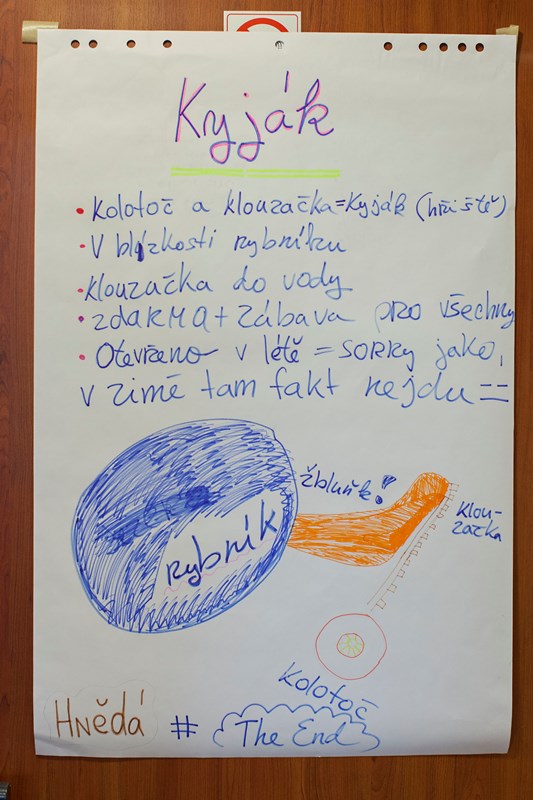 Kyják
• Kolotoč a klouzačka=Kyják (hřiště)
• V blízkosti rybníku
• klouzačka do vody
• zdaRMA + zábava pro všechny
• Otevřeno v létě = SORRY jako,
v zimě tam fakt nejdu =
žbluňk!
rybník
klou-
začka
Kolotoč
Hnědá # The End